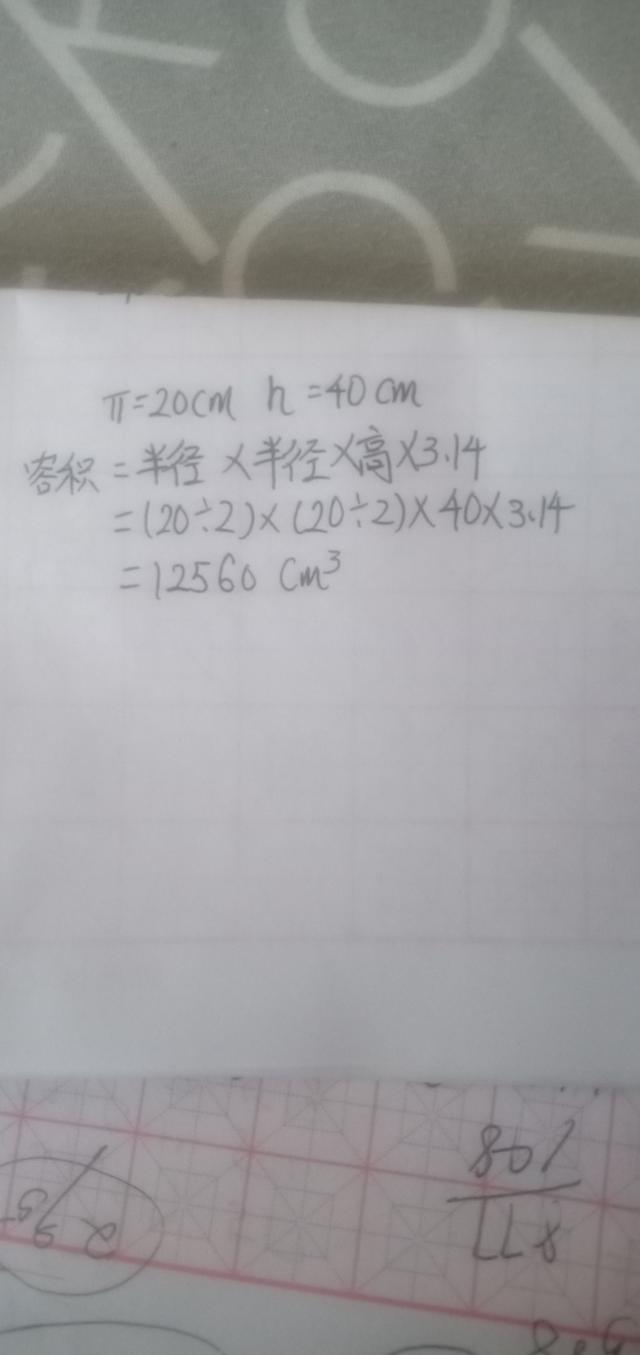 π=20cm h=40cm
容积=半径×半径×高×3.14
=(20÷2)×(20÷2)×40×3.14
=12560 cm³